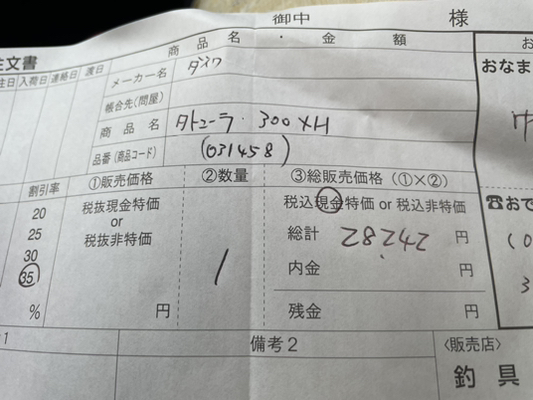 御中 様
注文書
商品名・金額
注日 入荷日 連絡日 渡日
メーカー名 ダイワ
帳合先(問屋)
商品名 タトゥーラ 300XH
品番(商品コード) (031458)
割引率 ①販売価格 ②数量 ③総販売価格(①×②)
20 税抜現金特価 税込現金特価 or 税込非特価
or
25 税抜非特価 総計 28,242 円
30 内金 円
35 1
% 円 残金 円
1 備考2 〈販売店〉
釣具
お
おなま
☎おで
(0
3